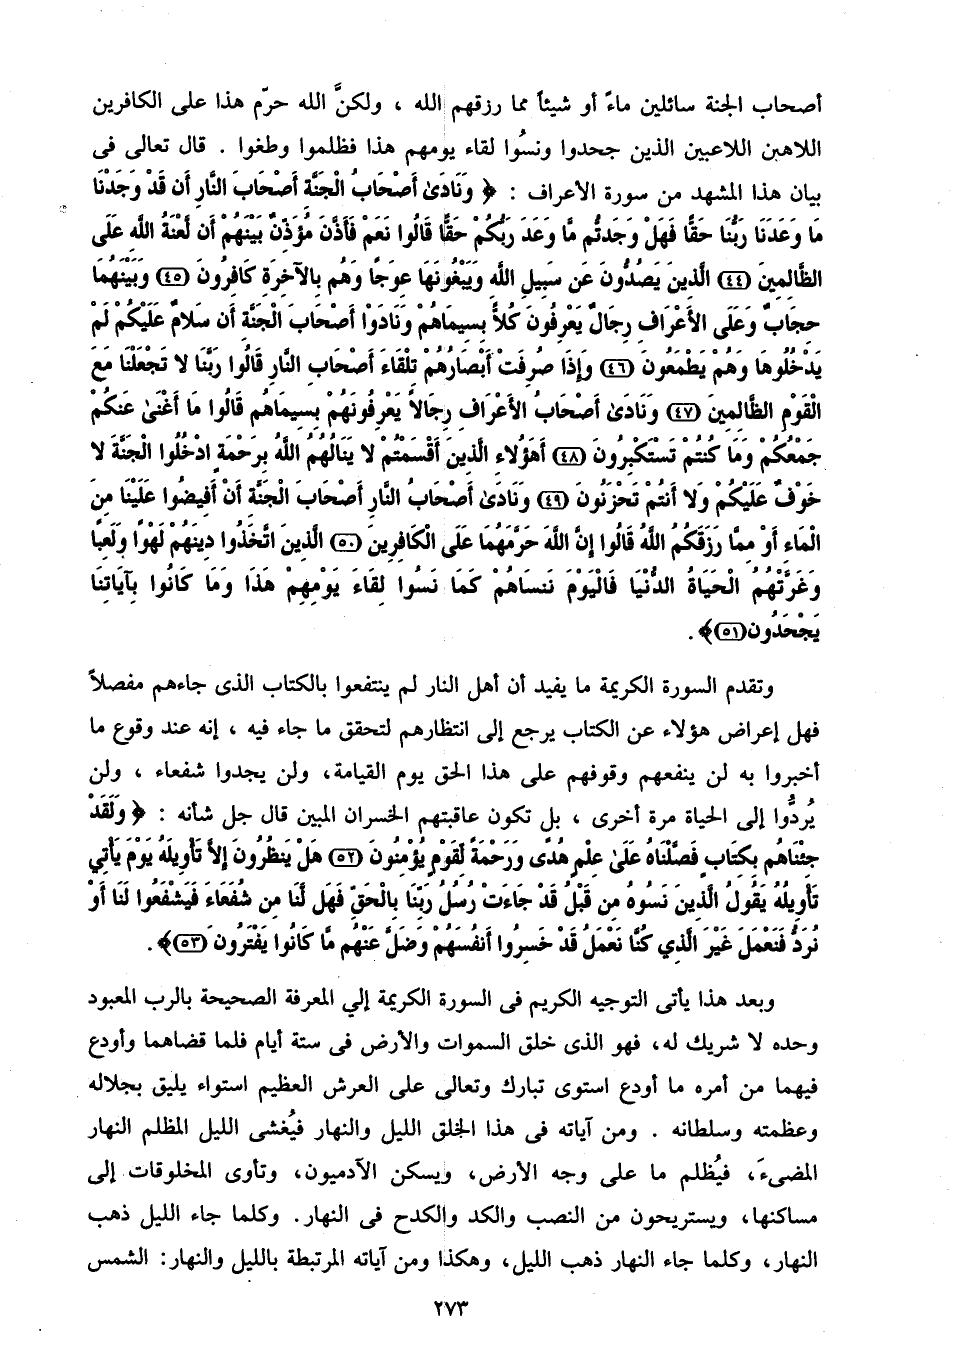 أصحاب الجنة سائلين ماءً أو شيئاً مما رزقهم الله ، ولكنَّ الله حرّم هذا على الكافرين
اللاهين اللاعبين الذين جحدوا ونسُوا لقاء يومهم هذا فظلموا وطغوا . قال تعالى فى
بيان هذا المشهد من سورة الأعراف : ﴿ وَنَادَىٰ أَصْحَابُ الْجَنَّةِ أَصْحَابَ النَّارِ أَن قَدْ وَجَدْنَا
مَا وَعَدَنَا رَبُّنَا حَقًّا فَهَلْ وَجَدتُّم مَّا وَعَدَ رَبُّكُمْ حَقًّا قَالُوا نَعَمْ فَأَذَّنَ مُؤَذِّنٌ بَيْنَهُمْ أَن لَّعْنَةُ اللَّهِ عَلَى
الظَّالِمِينَ (٤٤) الَّذِينَ يَصُدُّونَ عَن سَبِيلِ اللَّهِ وَيَبْغُونَهَا عِوَجًا وَهُم بِالآخِرَةِ كَافِرُونَ (٤٥) وَبَيْنَهُمَا
حِجَابٌ وَعَلَى الأَعْرَافِ رِجَالٌ يَعْرِفُونَ كُلاًّ بِسِيمَاهُمْ وَنَادَوْا أَصْحَابَ الْجَنَّةِ أَن سَلامٌ عَلَيْكُمْ لَمْ
يَدْخُلُوهَا وَهُمْ يَطْمَعُونَ (٤٦) وَإِذَا صُرِفَتْ أَبْصَارُهُمْ تِلْقَاءَ أَصْحَابِ النَّارِ قَالُوا رَبَّنَا لا تَجْعَلْنَا مَعَ
الْقَوْمِ الظَّالِمِينَ (٤٧) وَنَادَىٰ أَصْحَابُ الأَعْرَافِ رِجَالاً يَعْرِفُونَهُمْ بِسِيمَاهُمْ قَالُوا مَا أَغْنَىٰ عَنكُمْ
جَمْعُكُمْ وَمَا كُنتُمْ تَسْتَكْبِرُونَ (٤٨) أَهَؤُلاءِ الَّذِينَ أَقْسَمْتُمْ لا يَنَالُهُمُ اللَّهُ بِرَحْمَةٍ ادْخُلُوا الْجَنَّةَ لا
خَوْفٌ عَلَيْكُمْ وَلا أَنتُمْ تَحْزَنُونَ (٤٩) وَنَادَىٰ أَصْحَابُ النَّارِ أَصْحَابَ الْجَنَّةِ أَنْ أَفِيضُوا عَلَيْنَا مِنَ
الْمَاءِ أَوْ مِمَّا رَزَقَكُمُ اللَّهُ قَالُوا إِنَّ اللَّهَ حَرَّمَهُمَا عَلَى الْكَافِرِينَ (٥٠) الَّذِينَ اتَّخَذُوا دِينَهُمْ لَهْوًا وَلَعِبًا
وَغَرَّتْهُمُ الْحَيَاةُ الدُّنْيَا فَالْيَوْمَ نَنسَاهُمْ كَمَا نَسُوا لِقَاءَ يَوْمِهِمْ هَذَا وَمَا كَانُوا بِآيَاتِنَا
يَجْحَدُونَ(٥١)﴾ .
وتقدم السورة الكريمة ما يفيد أن أهل النار لم ينتفعوا بالكتاب الذى جاءهم مفصلاً
فهل إعراض هؤلاء عن الكتاب يرجع إلى انتظارهم لتحقق ما جاء فيه ، إنه عند وقوع ما
أخبروا به لن ينفعهم وقوفهم على هذا الحق يوم القيامة، ولن يجدوا شفعاء ، ولن
يُردُّوا إلى الحياة مرة أخرى ، بل تكون عاقبتهم الخسران المبين قال جل شأنه : ﴿ وَلَقَدْ
جِئْنَاهُم بِكِتَابٍ فَصَّلْنَاهُ عَلَىٰ عِلْمٍ هُدًى وَرَحْمَةً لِّقَوْمٍ يُؤْمِنُونَ (٥٢) هَلْ يَنظُرُونَ إِلاَّ تَأْوِيلَهُ يَوْمَ يَأْتِي
تَأْوِيلُهُ يَقُولُ الَّذِينَ نَسُوهُ مِن قَبْلُ قَدْ جَاءَتْ رُسُلُ رَبِّنَا بِالْحَقِّ فَهَل لَّنَا مِن شُفَعَاءَ فَيَشْفَعُوا لَنَا أَوْ
نُرَدُّ فَنَعْمَلَ غَيْرَ الَّذِي كُنَّا نَعْمَلُ قَدْ خَسِرُوا أَنفُسَهُمْ وَضَلَّ عَنْهُم مَّا كَانُوا يَفْتَرُونَ (٥٣)﴾ .
وبعد هذا يأتى التوجيه الكريم فى السورة الكريمة إلي المعرفة الصحيحة بالرب المعبود
وحده لا شريك له، فهو الذى خلق السموات والأرض فى ستة أيام فلما قضاهما وأودع
فيهما من أمره ما أودع استوى تبارك وتعالى على العرش العظيم استواء يليق بجلاله
وعظمته وسلطانه . ومن آياته فى هذا الخلق الليل والنهار فيُغشى الليل المظلم النهار
المضىءَ، فيُظلم ما على وجه الأرض، ويسكن الآدميون، وتأوى المخلوقات إلى
مساكنها، ويستريحون من النصب والكد والكدح فى النهار. وكلما جاء الليل ذهب
النهار، وكلما جاء النهار ذهب الليل، وهكذا ومن آياته المرتبطة بالليل والنهار: الشمس
٢٧٣